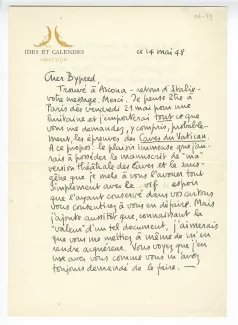 IDES ET CALENDES
ce 14 mai 48
Cher Bypeed,
Trouvé à Ascona - retour d'Italie -
votre message. Merci. Je pense être à
Paris dès vendredi 21 mai pour une
huitaine et j'emporterai tout ce que
vous me demandez, y compris, probable-
ment, les épreuves des Caves du Vatican.
A ce propos : le plaisir immense que j'au-
rais à posséder le manuscrit de "ma"
version théâtrale des Caves et le sans-
gêne que je mets à vous l'avouer tout
simplement avec le espoir
que l'ayant conservé dans vos cartons
vous consentirez à vous en défaire. Mais
j'ajoute aussitôt que, connaissant la
"valeur" d'un tel document, j'aimerais
que vous me mettiez à même de m'en
rendre acquéreur. Vous voyez que j'en
use avec vous comme vous m'avez
toujours demandé de le faire. —